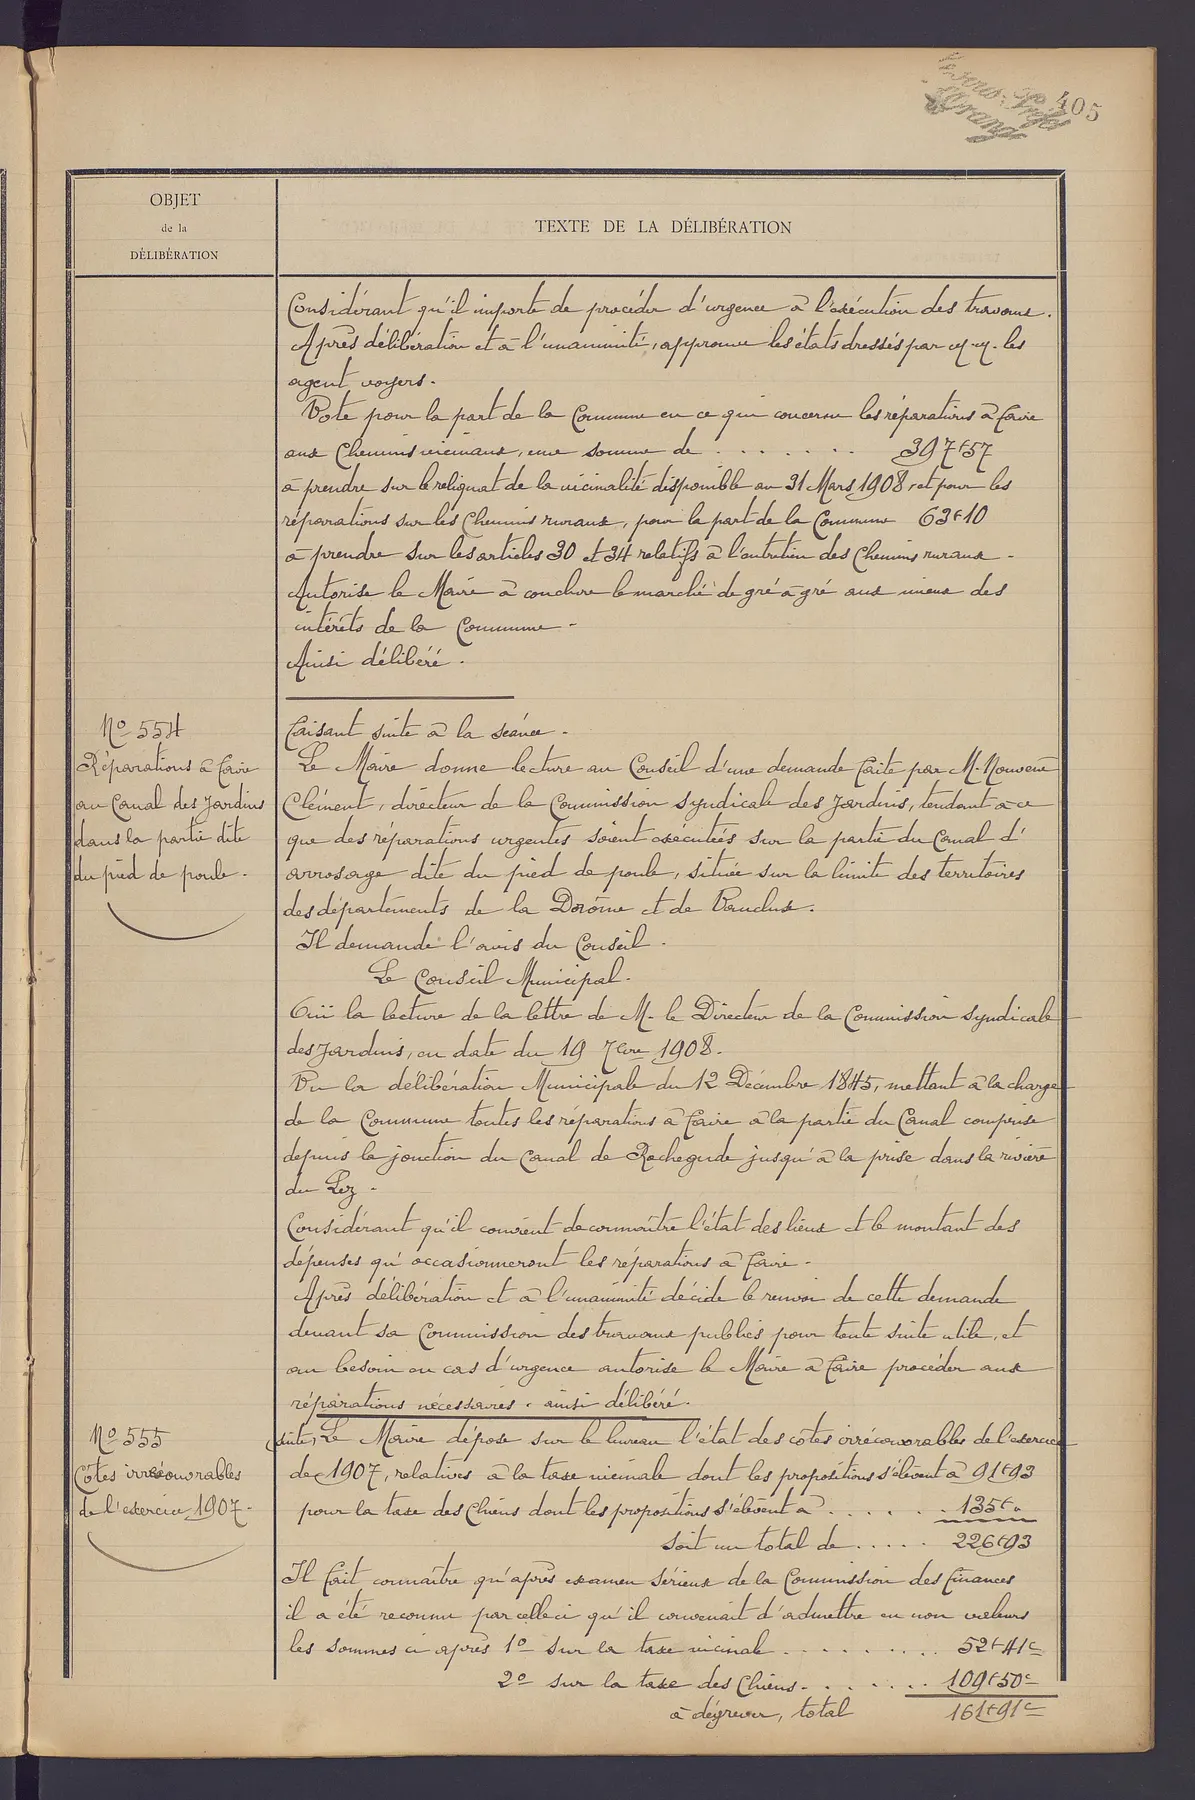 405
OBJET
de la
DÉLIBÉRATION
TEXTE DE LA DÉLIBÉRATION
Considérant qu'il importe de procéder d'urgence à l'exécution des travaux.
Après délibération et à l'unanimité, approuve les états dressés par M.M. les
agent voyers.
Vote pour la part de la Commune en ce qui concerne les réparations à faire
aux Chemins vicinaux, une somme de . . . . . . . 397f57
à prendre sur le reliquat de la vicinalité disponible au 31 Mars 1908, et pour les
réparations sur les Chemins ruraux, pour la part de la Commune 63f10
à prendre sur les articles 30 et 34 relatifs à l'entretien des Chemins ruraux.
Autorise le Maire à conclure le marché de gré à gré aux mieux des
intérêts de la Commune.
Ainsi délibéré.
No 554
Réparations à faire
au Canal des Jardins
dans la partie dite
du pied de poule.
Faisant suite à la séance.
Le Maire donne lecture au Conseil d'une demande faite par M. Nouvene
Clément, directeur de la Commission syndicale des Jardins, tendant à ce
que des réparations urgentes soient exécutées sur la partie du Canal d'
arrosage dite du pied de poule, située sur la limite des territoires
des départements de la Drôme et de Vaucluse.
Il demande l'avis du Conseil.
Le Conseil Municipal.
Ouï la lecture de la lettre de M. le Directeur de la Commission syndicale
des Jardins, en date du 19 7bre 1908.
Vu la délibération Municipale du 12 Décembre 1845, mettant à la charge
de la Commune toutes les réparations à faire à la partie du Canal comprise
depuis la jonction du Canal de Rochegude jusqu'à la prise dans la rivière
du Lez.
Considérant qu'il convient de connaître l'état des lieux et le montant des
dépenses qu'occasionneront les réparations à faire.
Après délibération et à l'unanimité décide le renvoi de cette demande
devant sa Commission des travaux publics pour toute suite utile, et
au besoin en cas d'urgence autorise le Maire à faire procéder aux
réparations nécessaires. ainsi délibéré.
No 555
Côtes irrécouvrables
de l'exercice 1907.
suite, Le Maire dépose sur le bureau l'état des côtes irrécouvrables de l'exercice
de 1907, relatives à la taxe vicinale dont les propositions s'élèvent à 91f93
pour la taxe des Chiens dont les propositions s'élèvent à . . . . . 135f "
soit un total de . . . . . 226f93
Il fait connaître qu'après examen sérieux de la Commission des finances
il a été reconnu par celle ci qu'il convenait d'admettre en non valeurs
les sommes ci après 1o sur la taxe vicinale . . . . . . . . 52f41c
2o sur la taxe des Chiens. . . . . . . 109f50c
à dégrever, total 161f91c